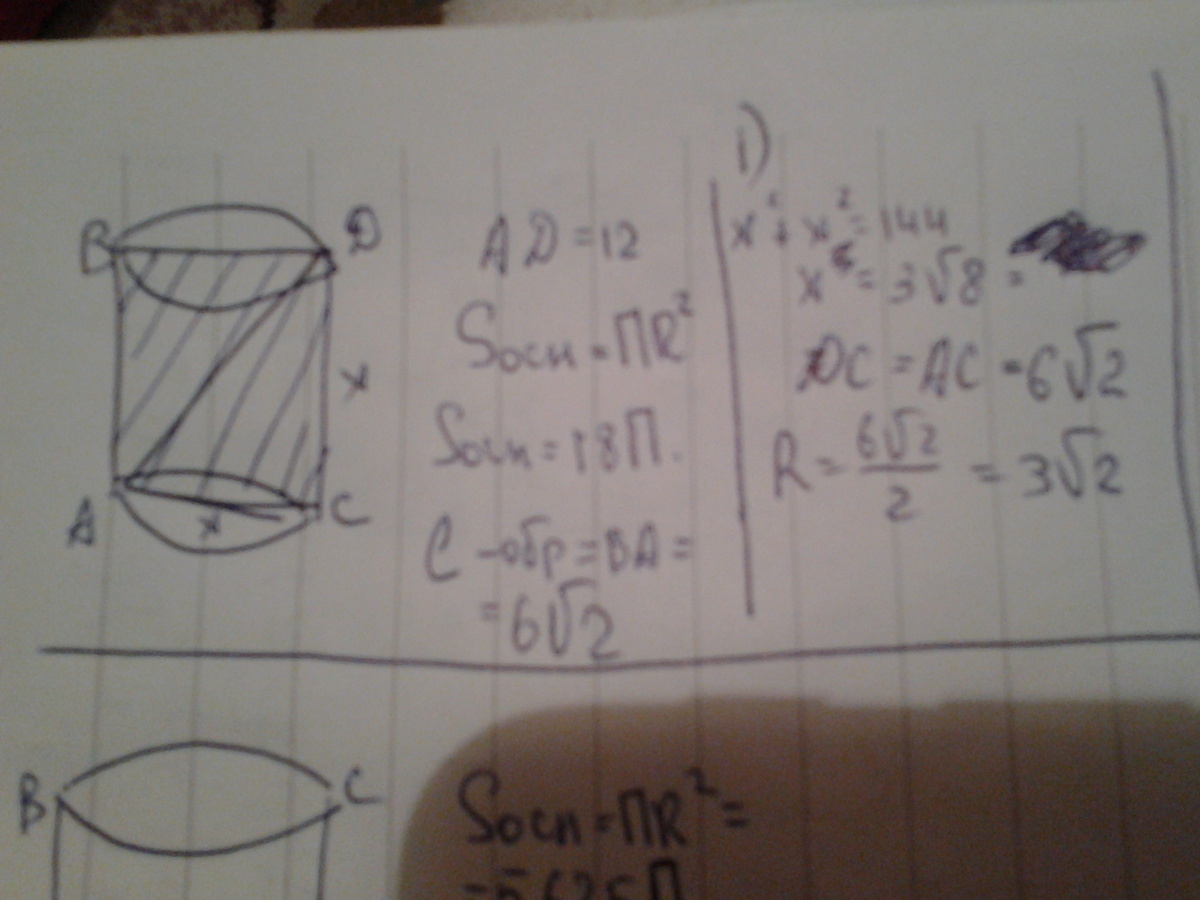 B
D
A
C
x
x
AD = 12
Sосн = ПR²
Sосн = 18П.
C -обр = BA =
= 6√2
1)
x² + x² = 144
x = 3√8 =
DC = AC = 6√2
R = 6√2/2 = 3√2
B
C
Sосн = ПR² =